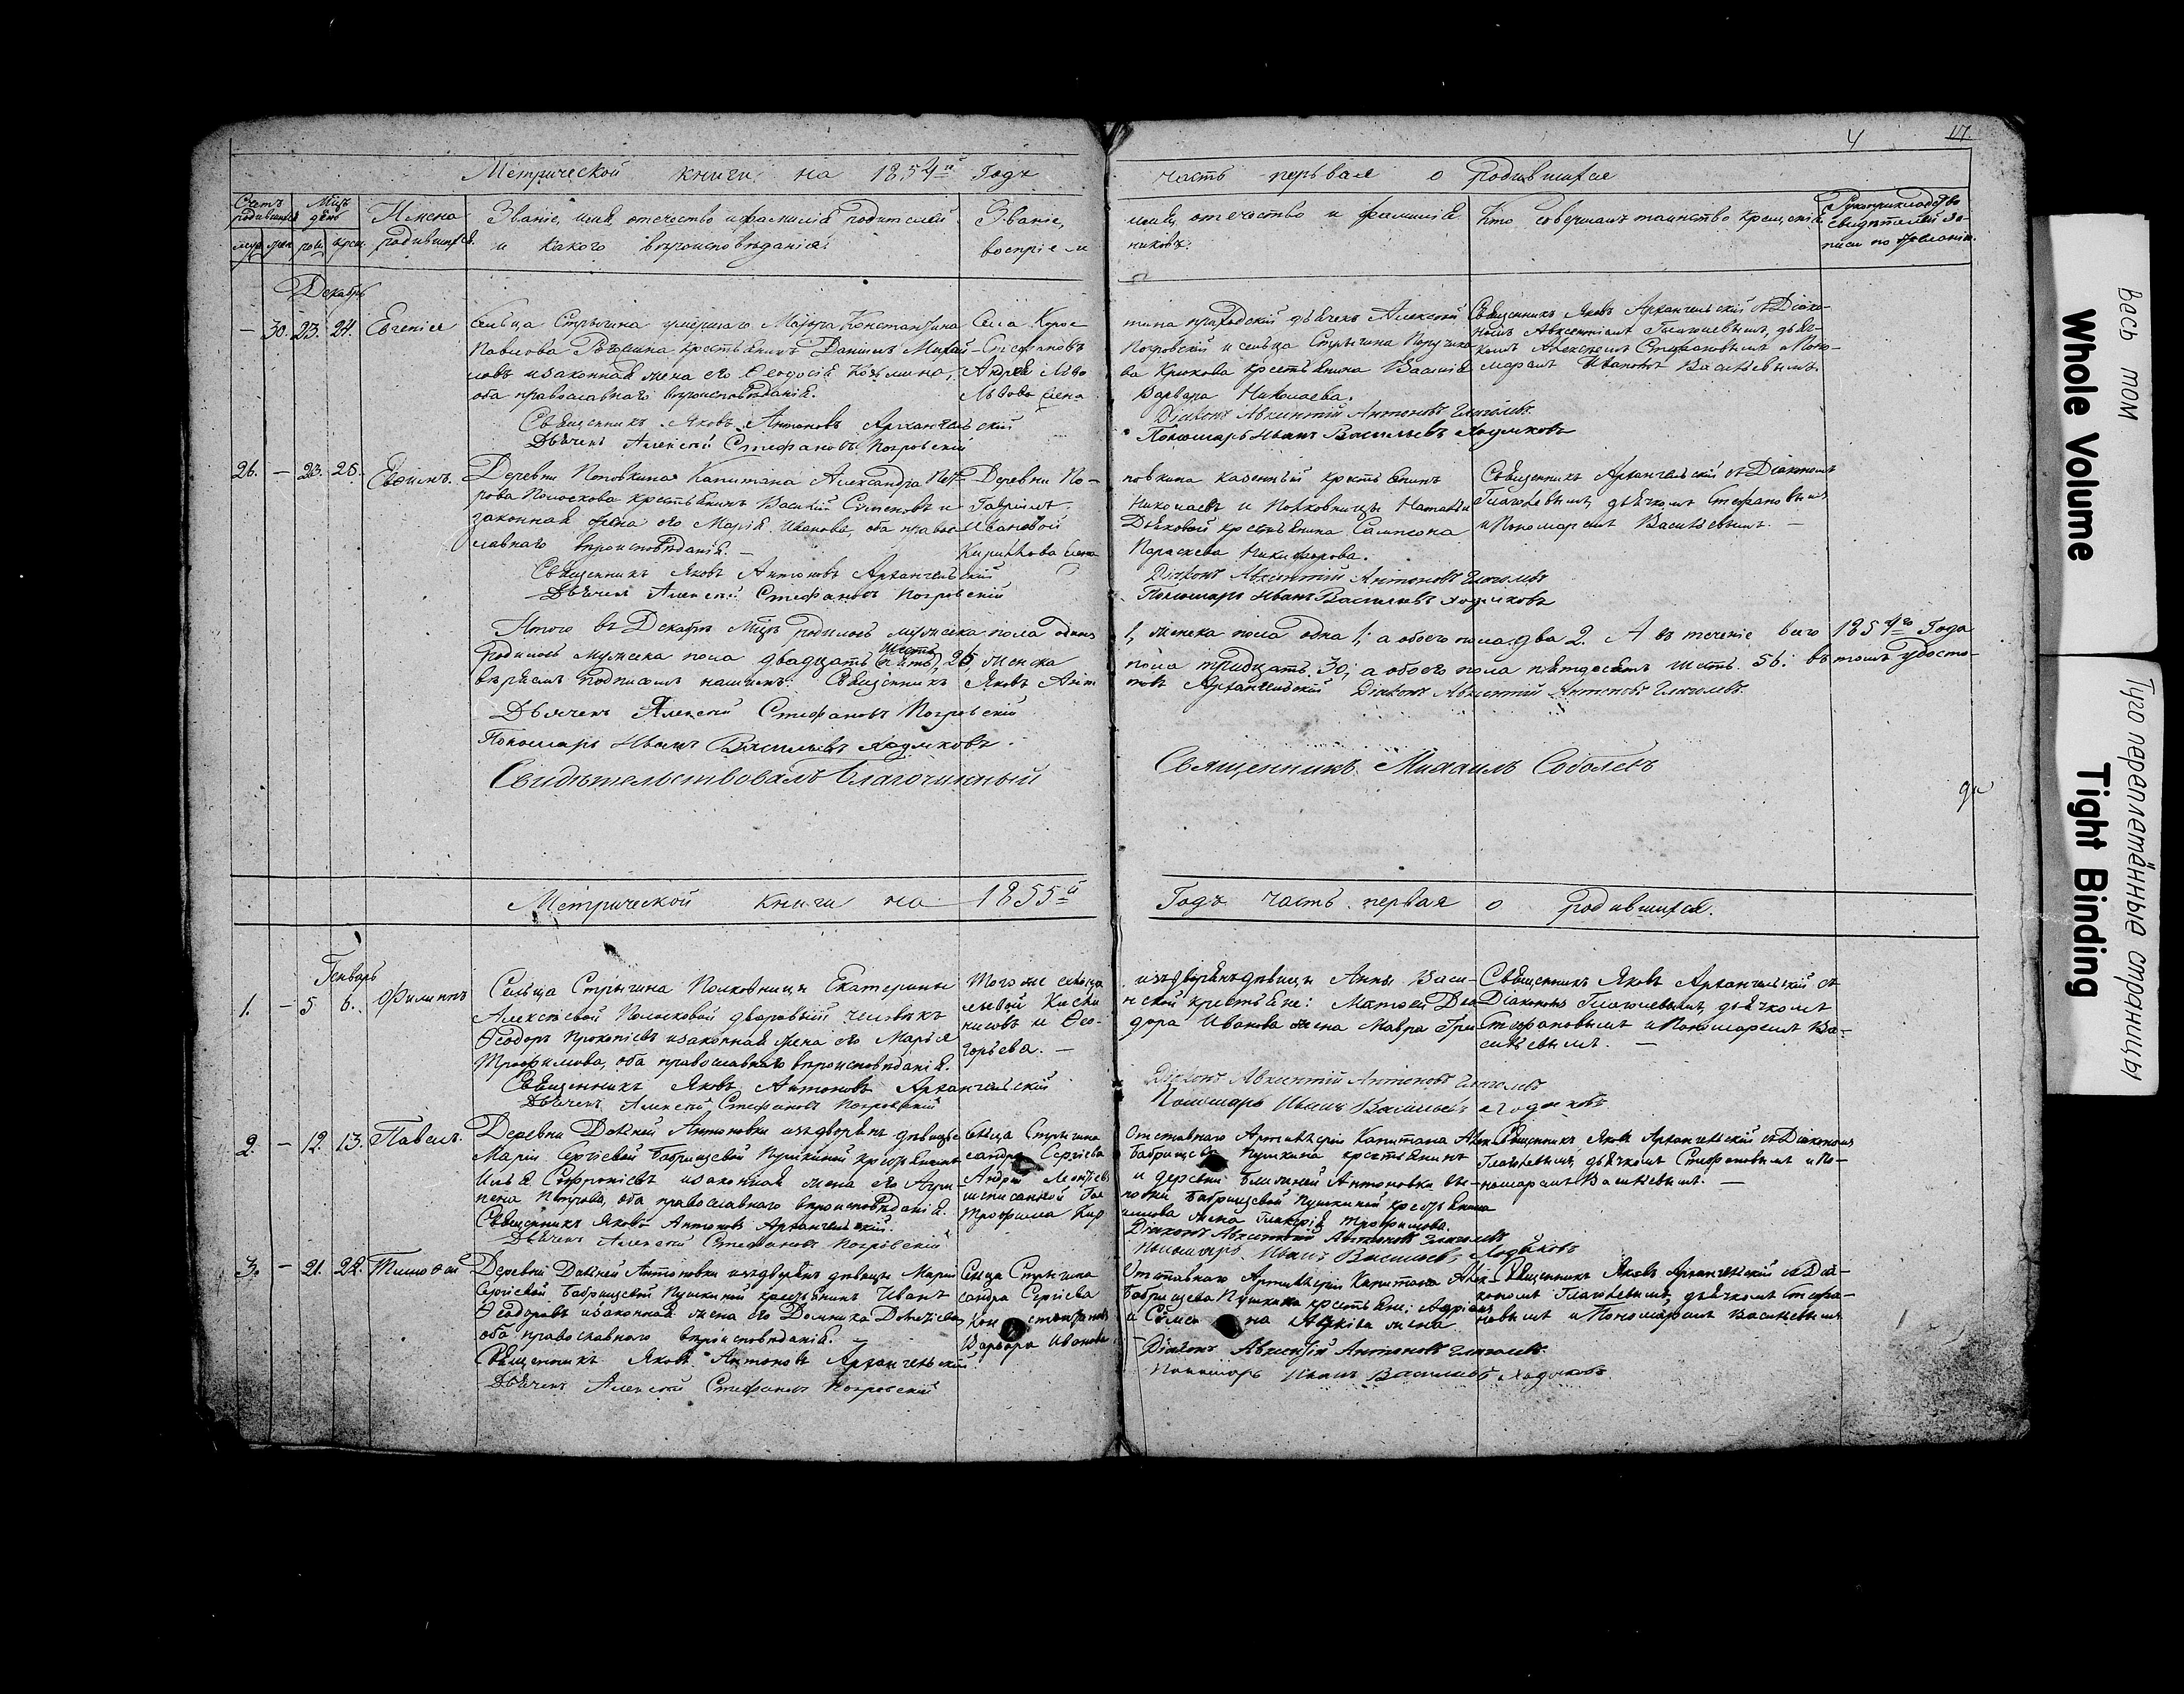 4 117.
Метрической книги на 1854й Годъ часть перьвая о родившихся
Счетъ родившихся
Мцъ день
Имена родившихся.
Званіе, имя, отечество и фамилія родителей и какого вѣроисповѣданія.
Званіе, имя, отечество и фамилія воспріемниковъ.
Кто совершалъ таинство крещенія
Рукоприкладство свидѣтелей записи по желанію.
муж жен рож. крещ.
Декабрь
— 30. 23. 24. Евгенія
Сельца Стрыгина умершаго Маіора Константина
Павлова крестьянинъ Даніилъ Михай-
ловъ и законная жена его Ѳеодосія Козьмина,
оба православнаго вѣроисповѣданія.
Священникъ Яковъ Антоновъ Архангельскій
Дьячекъ Алексей Стефановъ Покровскій
Села
Стефановъ
Андрея Льво
Львова жена
приходскій дьячекъ Алексей
Покровскій и сельца Стрыгина Поручика
ва Крюкова крестьянина Василія
Варвара Николаева.
Діаконъ Авксентій Антоновъ Глаголевъ
Пономарь Иванъ Васильевъ Ходяковъ
Священникъ Яковъ Архангельскій съ Діако-
номъ Авксентіемъ Глаголевымъ, дьяч-
комъ Алексеемъ Стефановымъ и Поно-
маремъ Иваномъ Васильевымъ.
26. — 23. 26. Евѳимъ.
Деревни Поповкина Капитана Александра Пет-
рова Полоскова крестьянинъ Василій Семеновъ и
законная жена его Марія Иванова, оба право
славнаго вѣроисповѣданія. —
Священникъ Яковъ Антоновъ Архангельскій
Дьячекъ Алексей Стефановъ Покровскій
Деревни По-
Гавріилъ
Ивановой
Кириллова жена
повкина казенный крестьянинъ
Николаевъ и Полковницы Натальи
Дьяковой крестьянина Сампсона
Параскева Никифорова.
Діаконъ Авксентій Антоновъ Глаголевъ
Пономарь Иванъ Васильевъ Ходяковъ
Священникъ Архангельскій съ Діакономъ
Глаголевымъ, дьячкомъ Стефановымъ
и Пономаремъ Васильевымъ. —
Итого въ Декабрѣ Мцѣ родилось мужеска пола одинъ 1, женска пола одна 1; а обоего пола два 2. А въ теченіе всего 1854го Года
родилось мужеска пола двадцать шесть 26 женска пола тридцать. 30; а обоего пола пятдесятъ шесть. 56: въ томъ удосто-
вѣряемъ подписомъ нашимъ: Священникъ Яковъ Антоновъ Архангельскій Діаконъ Авксентій Антоновъ Глаголевъ.
Дьячекъ Алексей Стефановъ Покровскій
Пономарь Иванъ Васильевъ Ходяковъ.
Свидѣтельствовалъ Благочинный Священникъ Михаилъ Соболевъ
Метрической книги на 1855й Годъ часть первая о родившихся.
Генварь
1. — 5 6. Филиппъ
Сельца Стрыгина Полковницы Екатерины
Алексѣевой Полосковой дворовый человѣкъ
Ѳеодоръ Прокопіевъ и законная жена его Марья
Трофимова, оба православнаго вѣроисповѣданія.
Священникъ Яковъ Антоновъ Архангельскій
Дьячекъ Алексей Стефановъ Покровскій
Того же сельца
нисовъ и Ѳео-
горьева. —
изъ дворянъ дѣвицы Анны Васи-
крестьяне: Матвей Де
дора Иванова жена Мавра Гри
Діаконъ Авксентій Антоновъ Глаголевъ
Пономарь Иванъ Васильевъ Ходяковъ
Священникъ Яковъ Архангельскій съ
Діакономъ Глаголевымъ, дьячкомъ
Стефановымъ и Пономаремъ Ва-
сильевымъ. —
2. — 12. 13. Павелъ.
Деревни Дальней Антоновки изъ дворянъ дѣвицы
Маріи Сергіевой Бабрищевой Пушкиной крестьянинъ
Илья Софроніевъ и законная жена его Агри-
пена Петрова, оба православнаго вѣроисповѣданія.
Священникъ Яковъ Антоновъ Архангельскій.
Дьячекъ Алексей Стефановъ Покровскій
Сельца Стрыгина
сандра Сергіева
Андрей Леонтьев
шеписанной Гос
Трофима Кир
Отставнаго Артиллеріи Капитана Алек
Бабрищева Пушкина крестьянинъ
и деревни Ближней Антоновки вы-
пожи Бабрищевой Пушкиной крестьянина
иллова жена Гликерія Трофимова.
Діаконъ Авксентій Антоновъ Глаголевъ
Пономарь Иванъ Васильевъ Ходяковъ
Священникъ Яковъ Архангельскій съ Діакономъ
Глаголевымъ, дьячкомъ Стефановымъ и По-
номаремъ Васильевымъ. —
3. — 21. 22. Тимоѳей
Деревни Дальней Антоновки изъ дворянъ дѣвицы Маріи
Сергіевой Бабрищевой Пушкиной крестьянинъ Иванъ
Ѳеодоровъ и законная жена его Домника
оба православнаго вѣроисповѣданія. —
Священникъ Яковъ Антоновъ Архангельскій.
Дьячекъ Алексей Стефановъ Покровскій
Сельца Стрыгина
сандра Сергіева
Константинъ
Варвара Иванова
Отставнаго Артиллеріи Капитана Алек
Бабрищева Пушкина крестьяне: Адріанъ
жена
Діаконъ Авксентій Антоновъ Глаголевъ.
Пономарь Иванъ Васильевъ Ходяковъ
Священникъ Яковъ Архангельскій съ Діа-
кономъ Глаголевымъ, дьячкомъ Стефа-
новымъ и Пономаремъ Васильевымъ
весь том
Whole Volume
Туго переплетённые страницы
Tight Binding